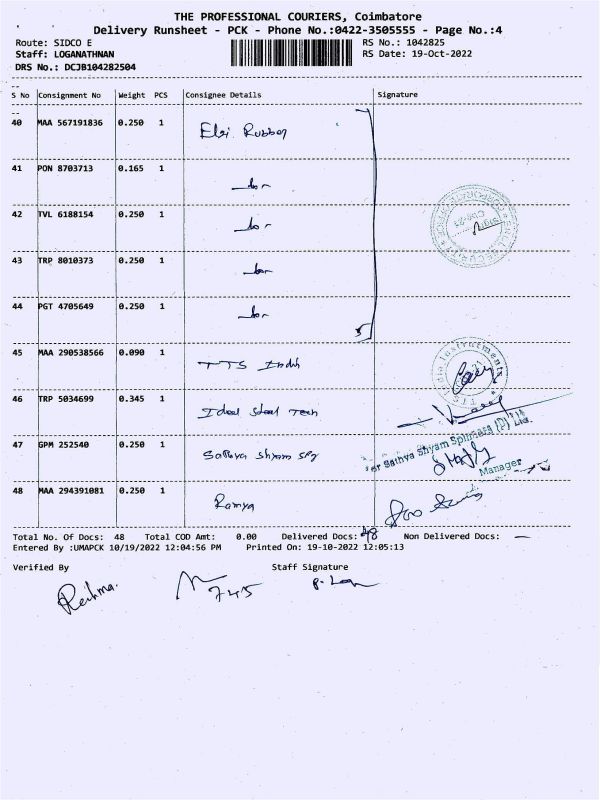 THE PROFESSIONAL COURIERS, Coimbatore
Delivery Runsheet - PCK - Phone No.:0422-3505555 - Page No.:4
Route: SIDCO E RS No.: 1042825
Staff: LOGANATHNAN RS Date: 19-Oct-2022
DRS No.: DCJB104282504
S No Consignment No Weight PCS Consignee Details Signature
40 MAA 567191836 0.250 1 Elgi Rubber
41 PON 8703713 0.165 1
42 TVL 6188154 0.250 1
43 TRP 8010373 0.250 1
44 PGT 4705649 0.250 1
5
45 MAA 290538566 0.090 1 TTS India
TTS India Instruments
46 TRP 5034699 0.345 1 Ideal Steel Tech
47 GPM 252540 0.250 1 Sathya Shyam Spg
For Sathya Shyam Spinners (P) Ltd.
Manager
48 MAA 294391081 0.250 1 Ramya
Total No. Of Docs: 48 Total COD Amt: 0.00 Delivered Docs: 48 Non Delivered Docs: —
Entered By :UMAPCK 10/19/2022 12:04:56 PM Printed On: 19-10-2022 12:05:13
Verified By Staff Signature
Reshma. 745